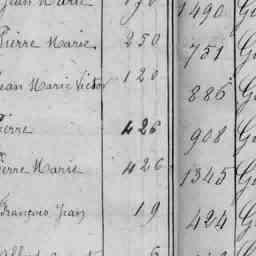 Jean Marie 1490
Pierre Marie 250 751
Jean Marie Victor 120 886
Pierre 426 908
Pierre Marie 426 1345
François Jean 19 424